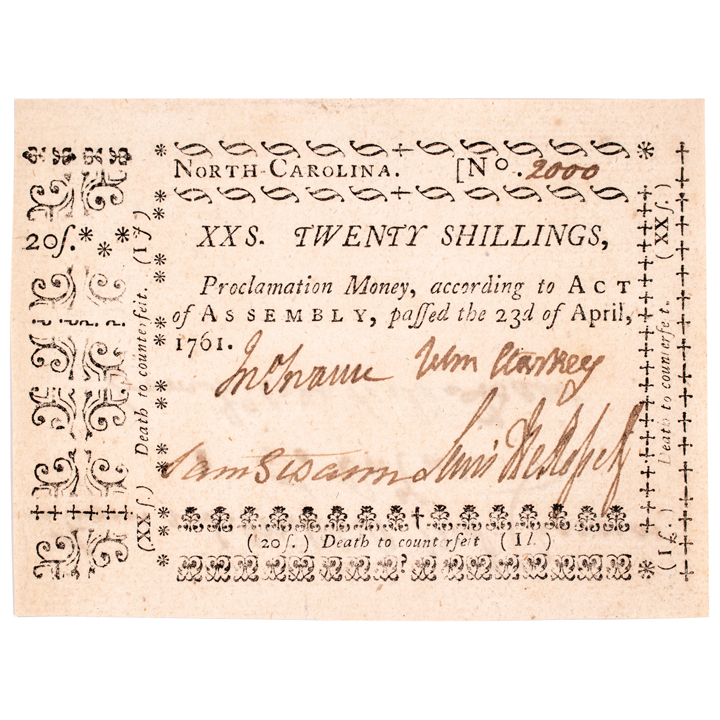 NORTH-CAROLINA. [No. 2000
20ſ.
XXS. TWENTY SHILLINGS,
Proclamation Money, according to ACT
of ASSEMBLY, paſſed the 23d of April,
1761.
Jno Swann Wm Starkey
Sam Swann Lewis DeRosset
(20ſ.) Death to counterfeit (1l.)
(XXſ.) Death to counterfeit. (1ſ)
(1£.) Death to counterfeit. (XXſ.)